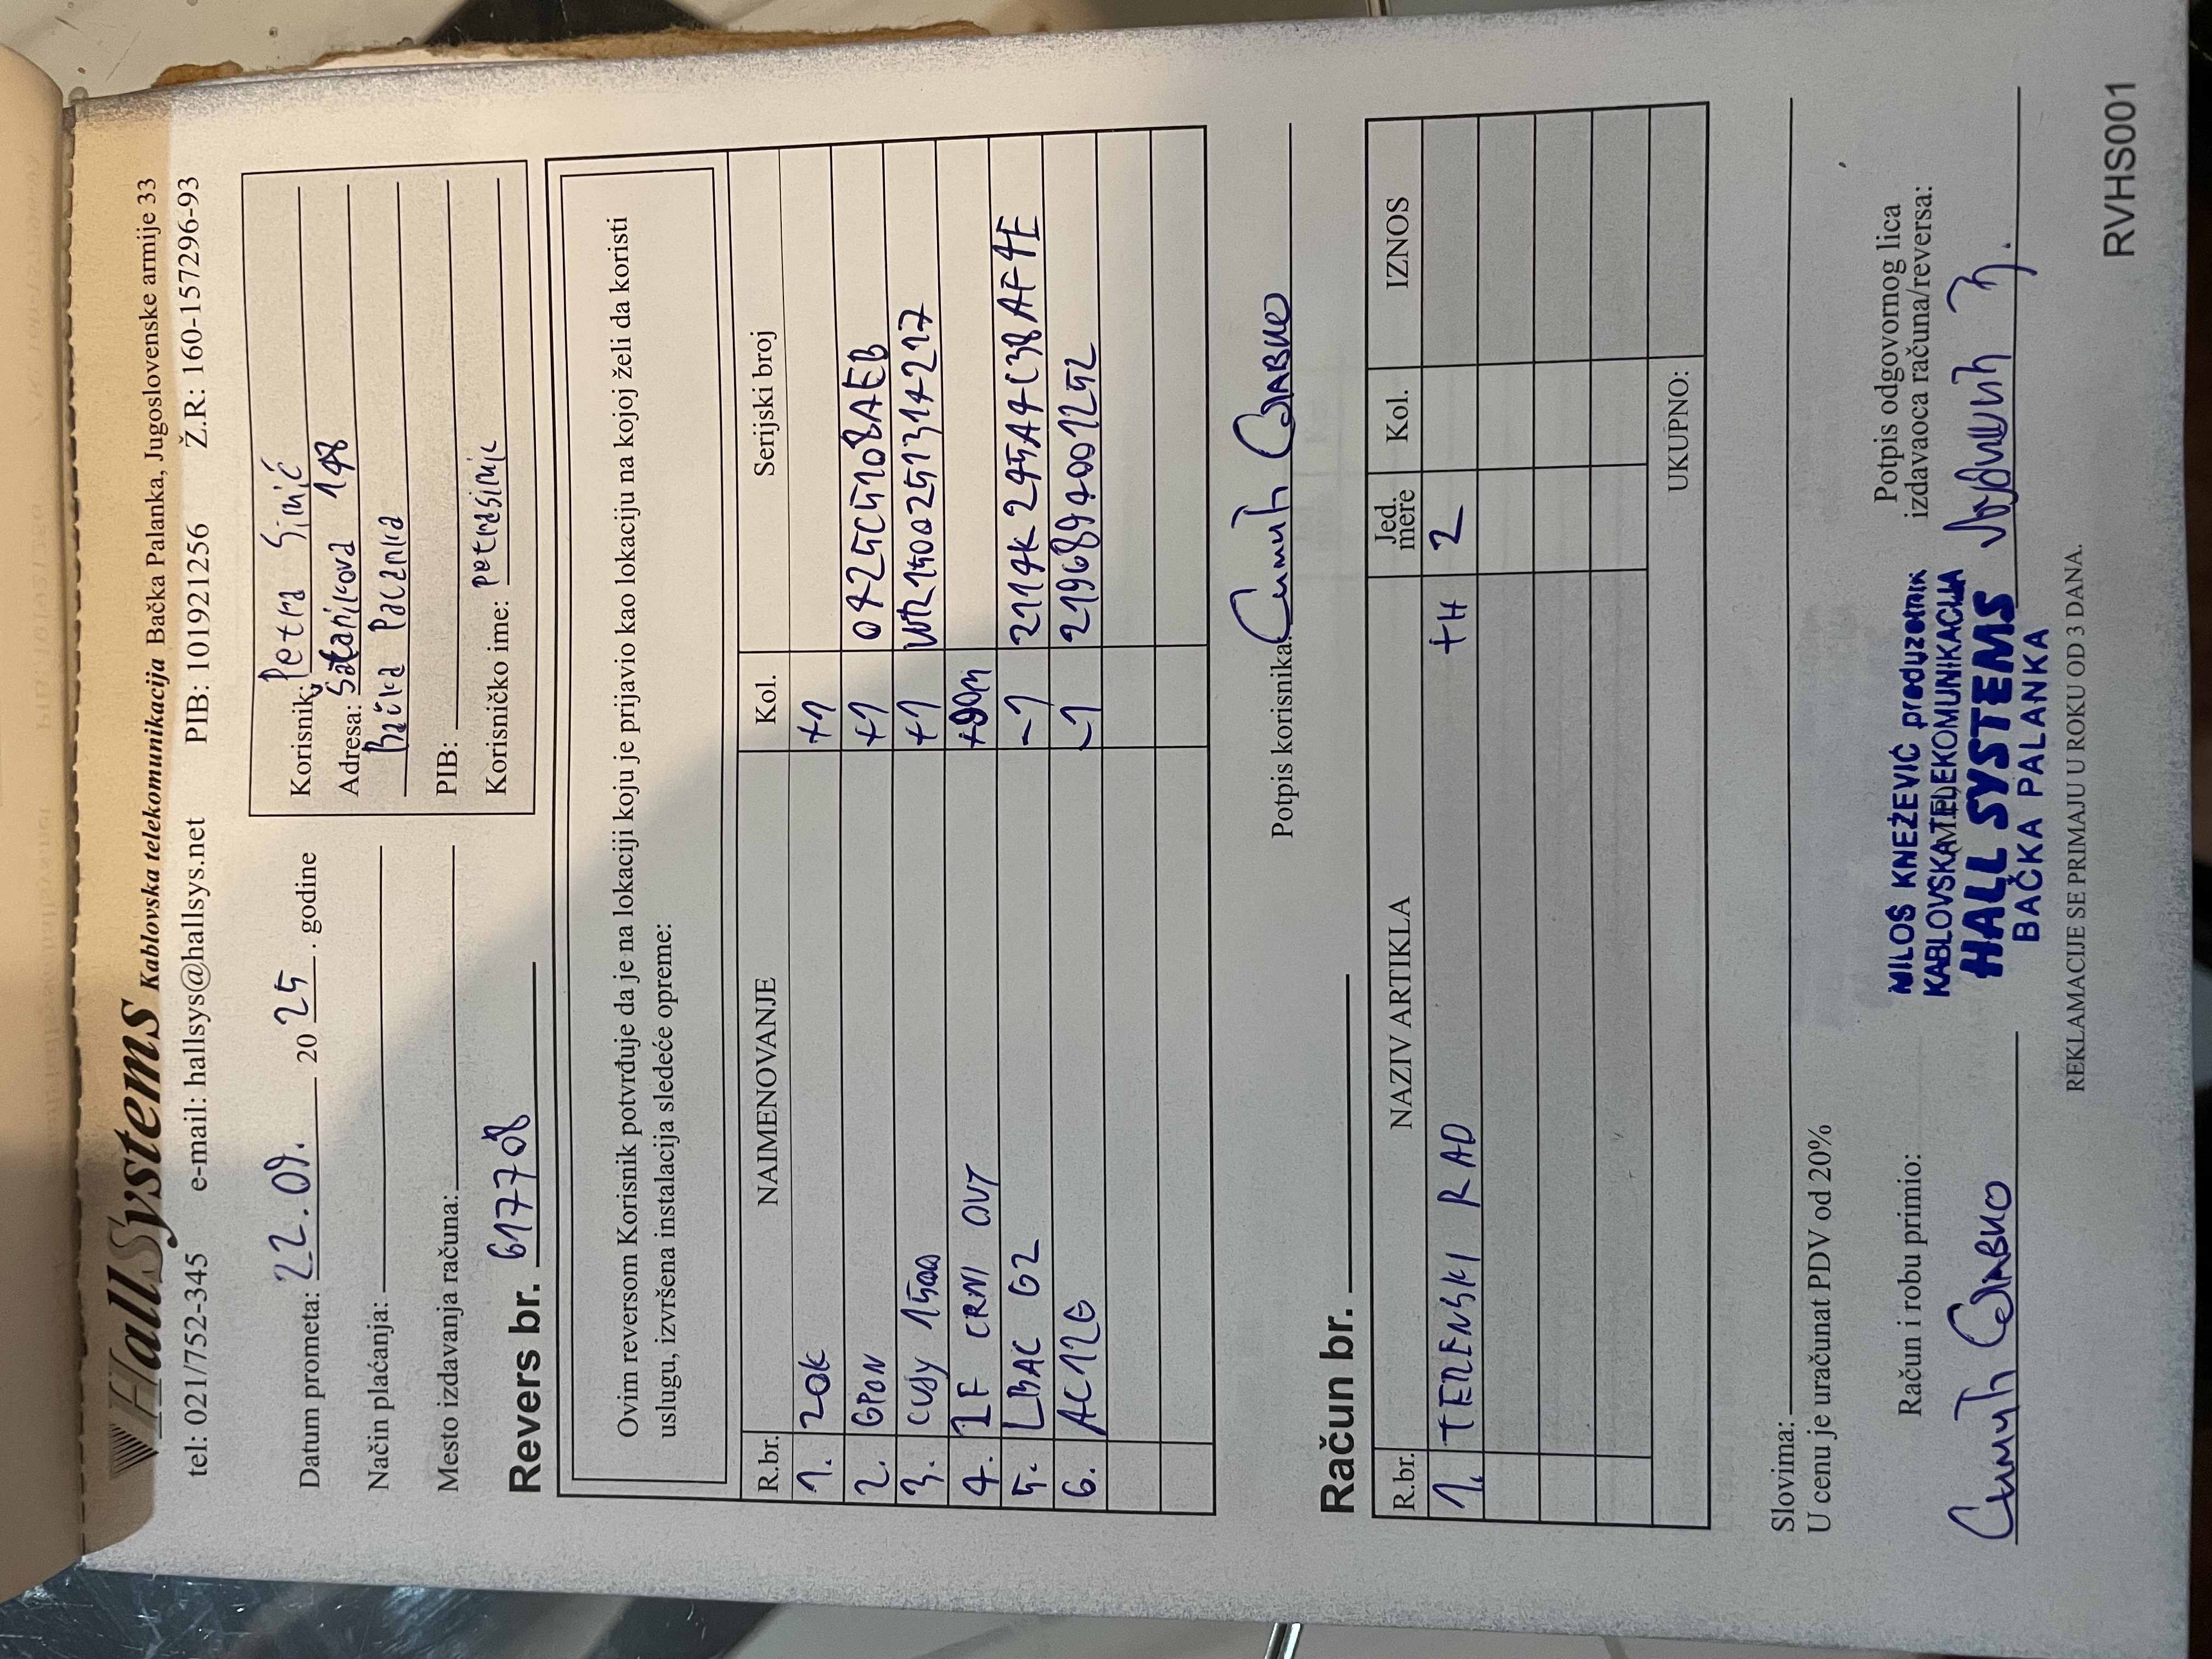 HallSystems Kablovska telekomunikacija Bačka Palanka, Jugoslovenske armije 33
tel: 021/752-345 e-mail: hallsys@hallsys.net PIB: 101921256 Ž.R: 160-157296-93
Datum prometa: 22.09. 2025. godine
Način plaćanja:
Mesto izdavanja računa:
Korisnik: Petra Simić
Adresa: 148
Bačka Palanka
PIB:
Korisničko ime: petrasimic
Revers br. 617708
Ovim reversom Korisnik potvrđuje da je na lokaciji koju je prijavio kao lokaciju na kojoj želi da koristi
uslugu, izvršena instalacija sledeće opreme:
R.br. NAIMENOVANJE Kol. Serijski broj
1. ZOK +1
2. GPON +1 0425C5108AEB
3. CUDY 1500 +1 WR1500251314217
4. 1F CRNI OUT +90m
5. LBAC G2 -1 2114K245A4C38AF4E
6. AC12G -1 2196894001252
Potpis korisnika: Симић Славко
Račun br.
R.br. NAZIV ARTIKLA Jed. mere Kol. IZNOS
1. TERENSKI RAD +H 2
UKUPNO:
Slovima:
U cenu je uračunat PDV od 20%
Račun i robu primio:
Симић Славко
MILOŠ KNEŽEVIĆ preduzetnik
KABLOVSKA TELEKOMUNIKACIJA
HALL SYSTEMS
BAČKA PALANKA
Potpis odgovornog lica
izdavaoca računa/reversa:
REKLAMACIJE SE PRIMAJU U ROKU OD 3 DANA.
RVHS001